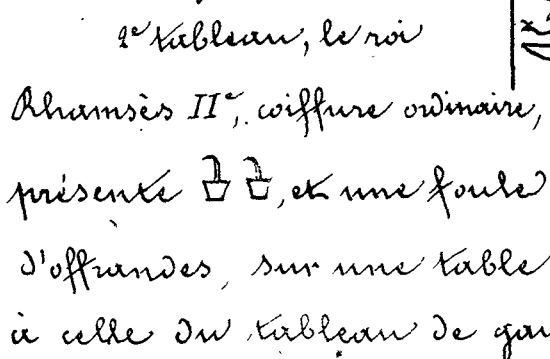 2e tableau, le roi
Rhamsès IIe, coiffure ordinaire,
présente 𓊹, et une foule
d'offrandes, sur une table
à celle du tableau de gau